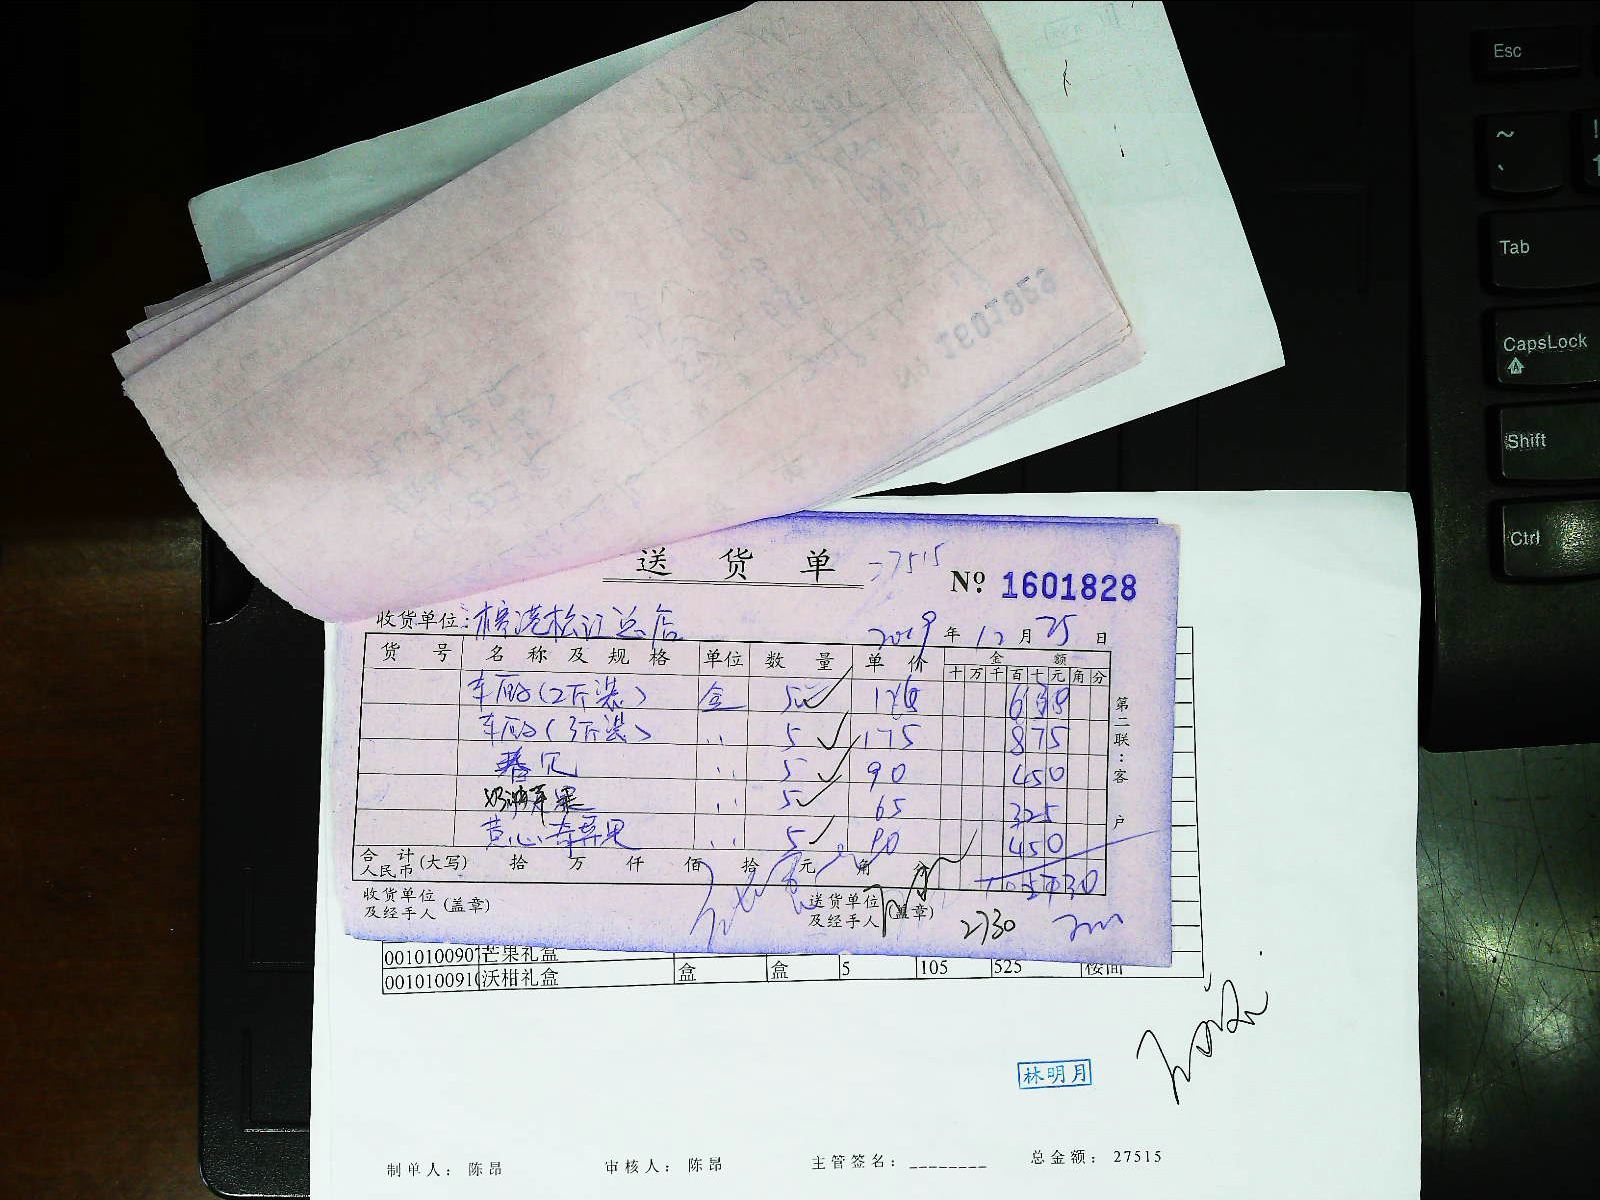 送 货 单 27515
№ 1601828
收货单位:榕港松江总店 2019 年 12 月 25 日
货 号 名 称 及 规 格 单位 数 量 单 价 金 额
十 万 千 百 十 元 角 分
车厘(2斤装) 盒 5 126 630
车厘(3斤装) 〃 5 175 875
春见 〃 5 90 450
苹果 〃 5 65 325
黄心奇异果 〃 5 90 450
合 计
人民币 (大写) 拾 万 仟 佰 拾 元 角 分
收货单位
及经手人 (盖章)
送货单位
及经手人 (盖章)
2730
第二联:客户
芒果礼盒
沃柑礼盒 盒 盒 5 105 525 楼面
林明月
制单人: 陈昂 审核人: 陈昂 主管签名: ________ 总金额: 27515
Esc
~
Tab
CapsLock
Shift
Ctrl